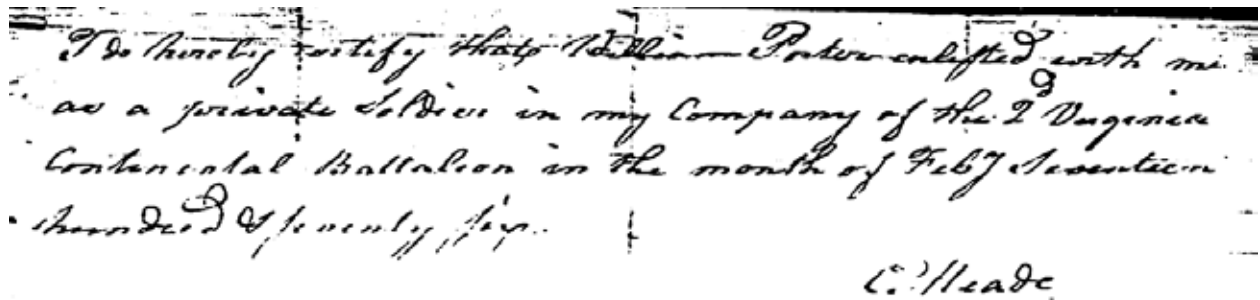 I do hereby certify that William Porter enlisted with me
as a private Soldier in my Company of the 2d Virginia
Continental Battalion in the month of Feby Seventeen
hundred & seventy six.
E. Meade